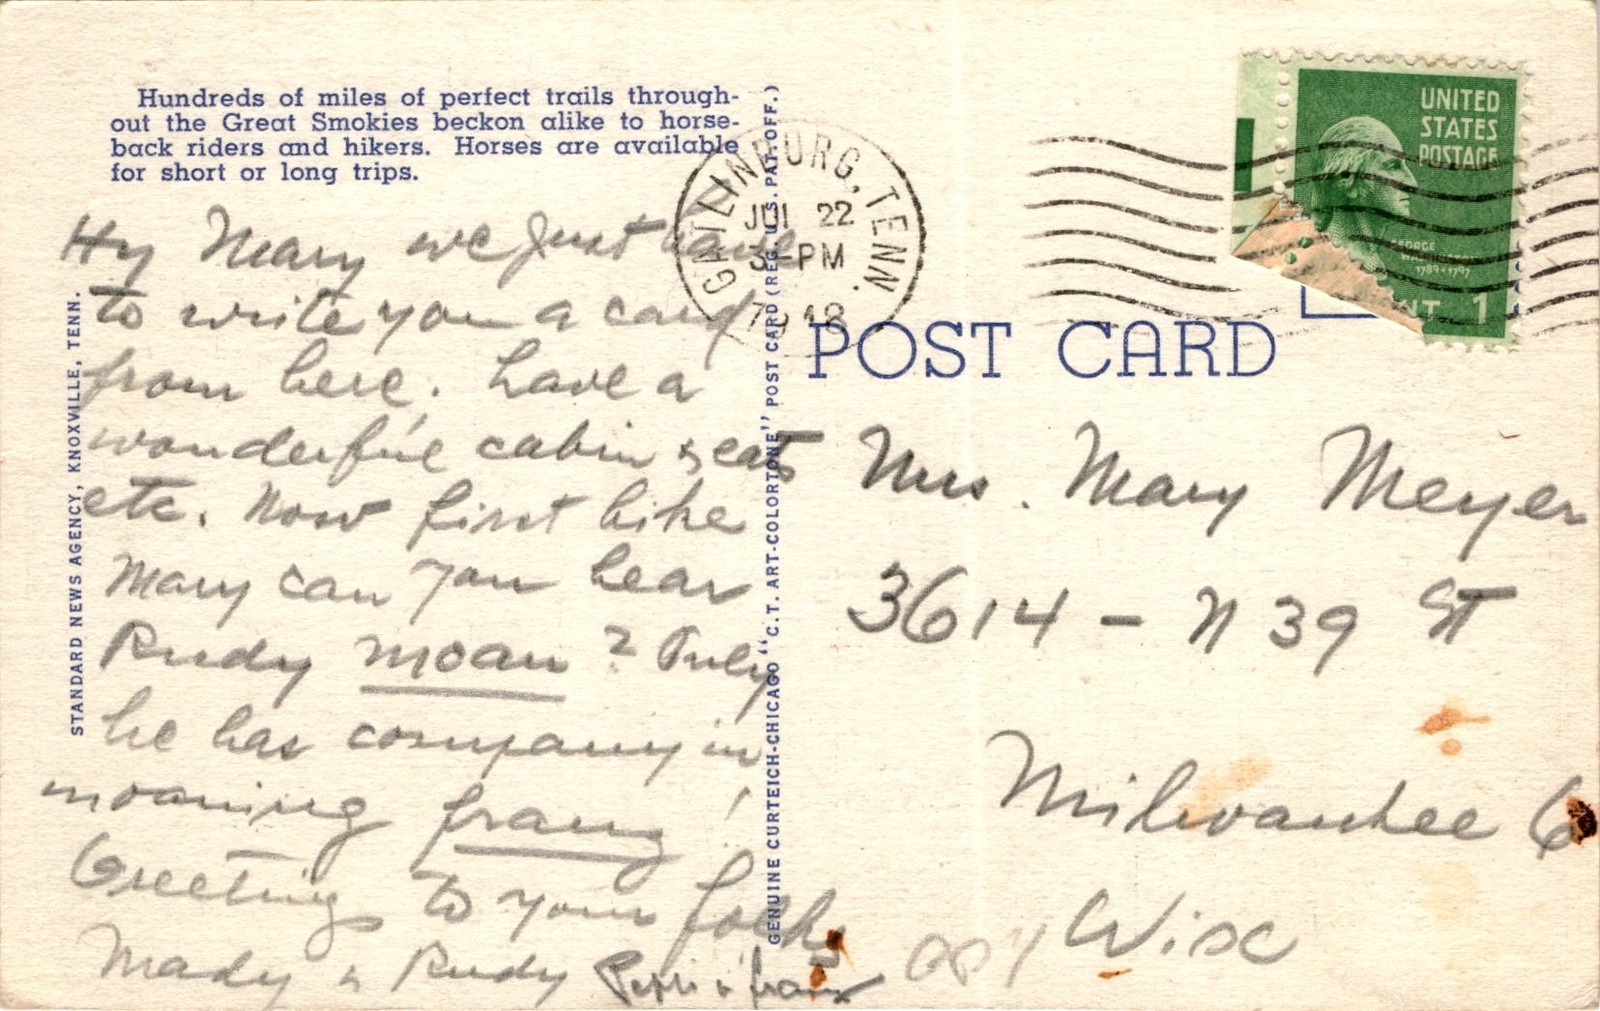 Hundreds of miles of perfect trails through-
out the Great Smokies beckon alike to horse-
back riders and hikers. Horses are available
for short or long trips.
Hy Mary we just have
to write you a card
from here. have a
wonderful cabin & eats
etc. Now first hike
Mary can you hear
Rudy moan? Only
he has company in
moaning franz!
Greetings to your folks
Mady & Rudy & franz
STANDARD NEWS AGENCY, KNOXVILLE, TENN.
GENUINE CURTEICH-CHICAGO "C. T. ART-COLORTONE" POST CARD (REG. U.S. PAT. OFF.)
GATLINBURG, TENN.
JUL 22
3-PM
1948
UNITED
STATES
POSTAGE
GEORGE
WASHINGTON
1789-1797
NT 1
POST CARD
Mrs. Mary Meyer
3614 - N 39 St
Milwaukee 6
Wisc